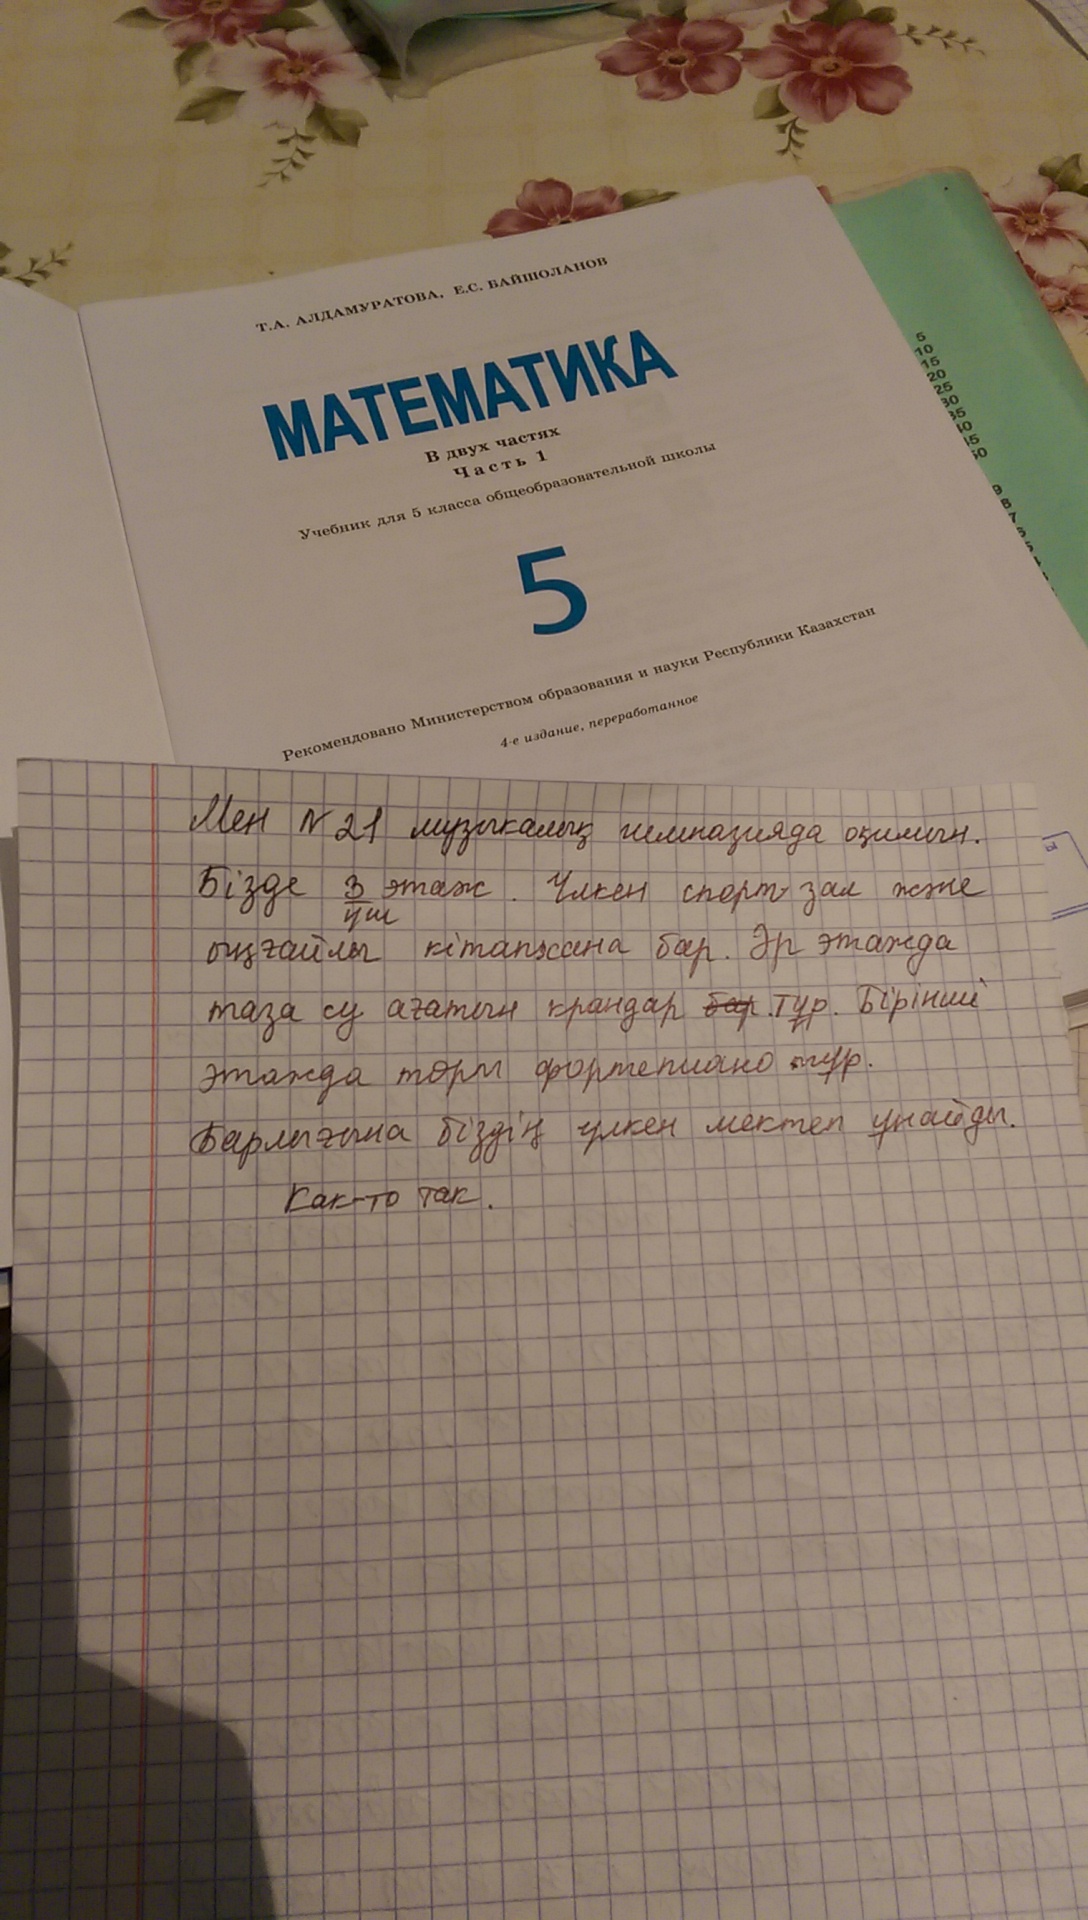 Т.А. АЛДАМУРАТОВА, Е.С. БАЙШОЛАНОВ
МАТЕМАТИКА
В двух частях
Часть 1
Учебник для 5 класса общеобразовательной школы
5
Рекомендовано Министерством образования и науки Республики Казахстан
4-е издание, переработанное
5
10
15
20
25
30
35
40
45
50
Мен N 21 музыкалық гимназияда оқимын.
Бізде 3 этаж. Үлкен спорт зал және
үш
оңғайлы кітапхана бар. Әр этажда
таза су ағатын крандар бар. тұр. Бірінші
этажда торы фортепиано тұр.
Барлығына біздің үлкен мектеп ұнайды.
Как-то так.